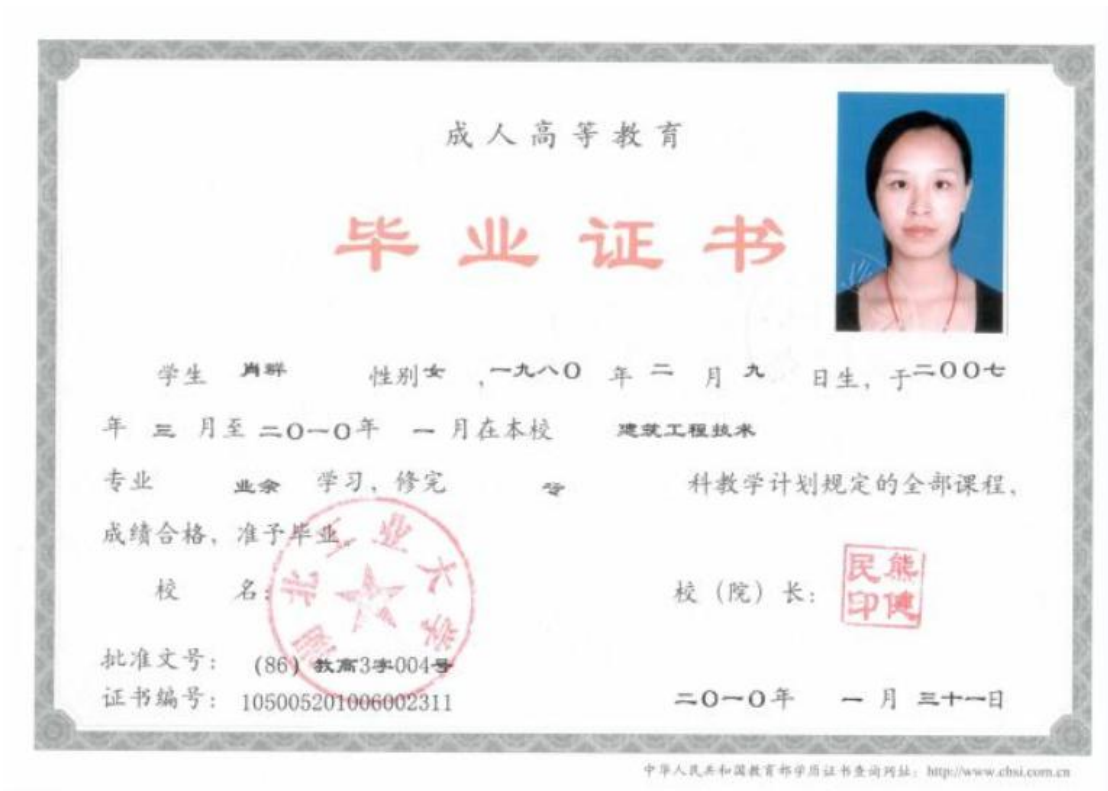 成人高等教育
毕业证书
学生 肖群 性别女,一九八〇年二月九日生，于二〇〇七
年三月至二〇一〇年一月在本校 建筑工程技术
专业 业余 学习，修完 专 科教学计划规定的全部课程，
成绩合格，准予毕业。
校 名： 校（院）长：
湖北工业大学
熊健民印
批准文号：（86）教高3字004号
证书编号：105005201006002311 二〇一〇年一月三十一日
中华人民共和国教育部学历证书查询网址：http://www.chsi.com.cn